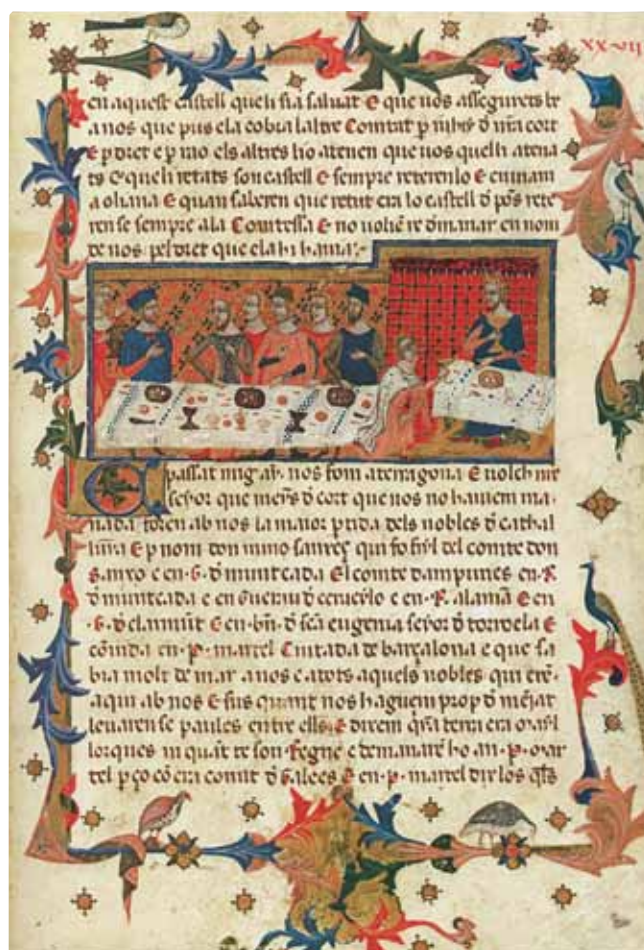 XXVII
en aquest castell que li sia saluat E que uos assegurets be
a nos que pus ela cobra laltre Comtat p mhs d nra cort
E p dret e p nro els altres ho atenen que uos quelli atena
ts e queli retats son castell E sempre reterenlo E
a oliana E quan saberen que retut era lo castell d pos rete
ren se sempre ala Comtessa E no uolien re dmanar en nom
de nos pel dret que ela hi hauia
E passat mig ay nos fom a terragona E uolch nre
seyor que meys d cort que nos no hauiem ma
nada foren ab nos la maior ptida dels nobles d cathal
lunya E p nom don nuno sanxeç qui fo fiyl del comte don
Sanxo e en G d muntcada El comte dampuries en R
d muntcada e en Guerau d cerueylo e en R alamay E en
G d claramunt E en bn d sca eugenia seyor d torroela E
co uida en P martel Ciutada de barçalona e que sa
bia molt de mar a nos e a tots aquels nobles qui eren
aqui ab nos E sus quant nos haguem prop d menjat
leuaren se paules entre ells E dixeren qna terra era mayl
lorques ni quant te son Regne e demanaren ho an P mar
tel p ço co era comit d galees E en P martel dix los